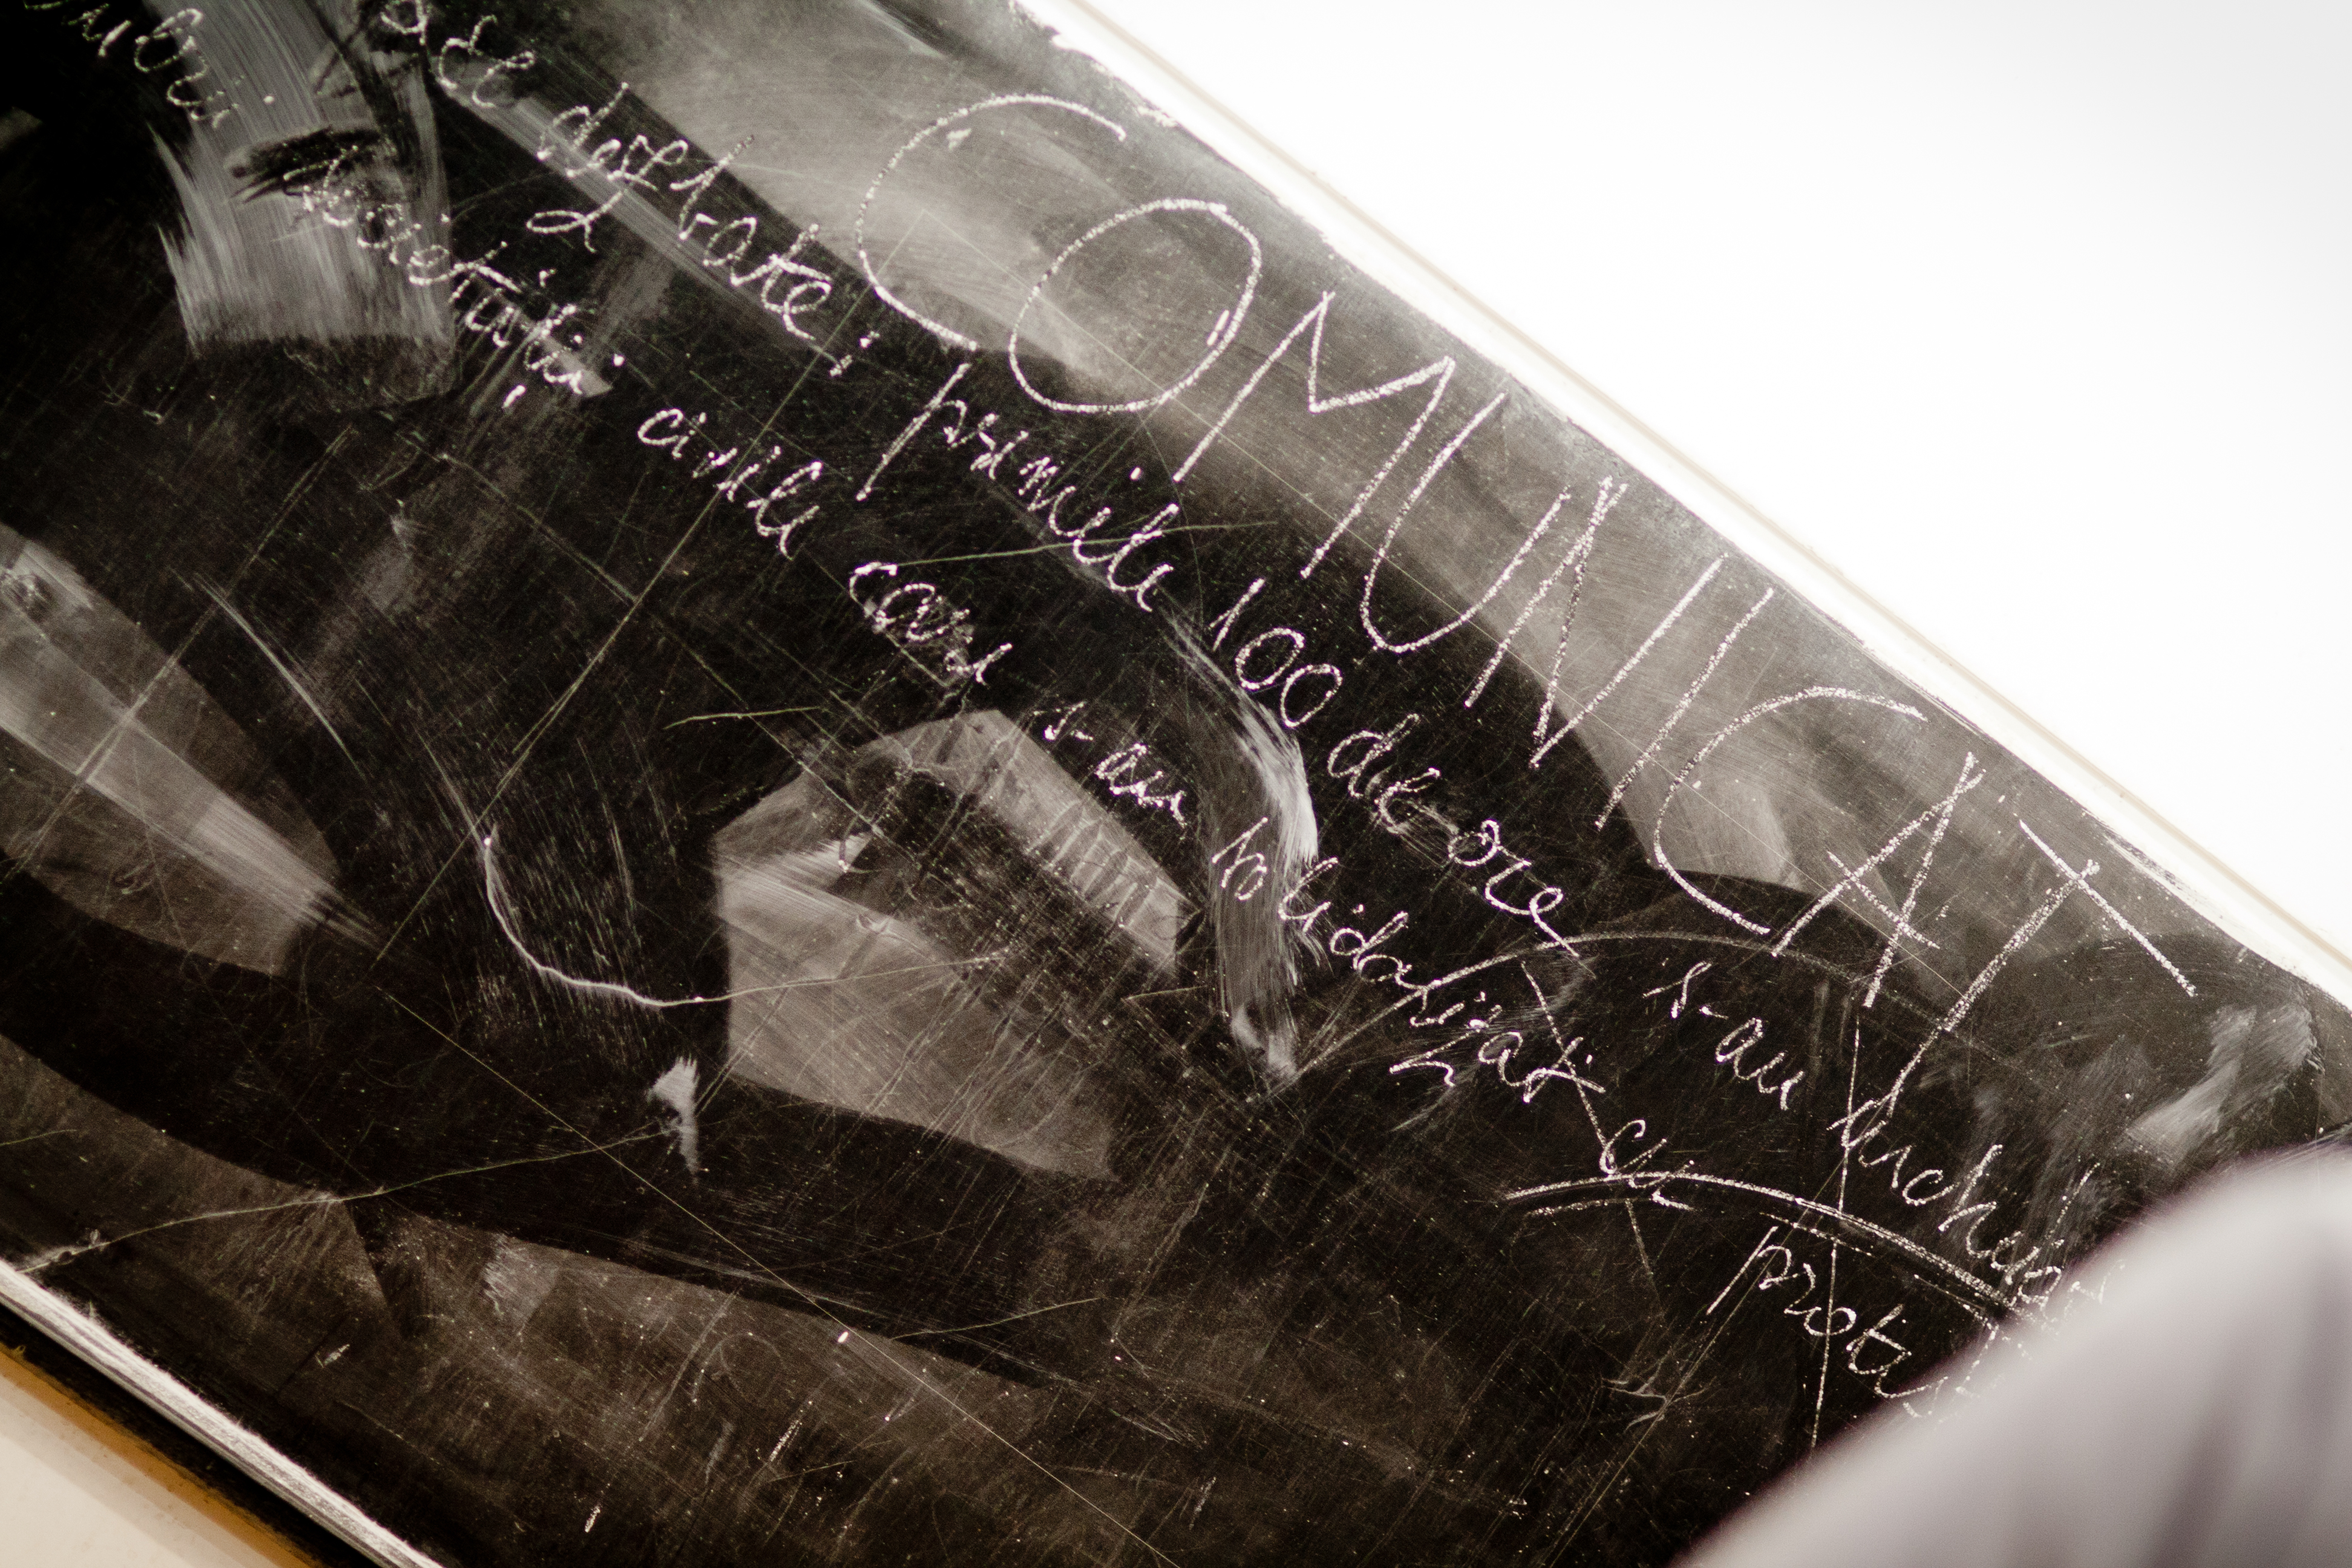 COMUNICAT
de dezbate; primele 100 de ore s-au încheiat
societății civile care s-au solidarizat cu